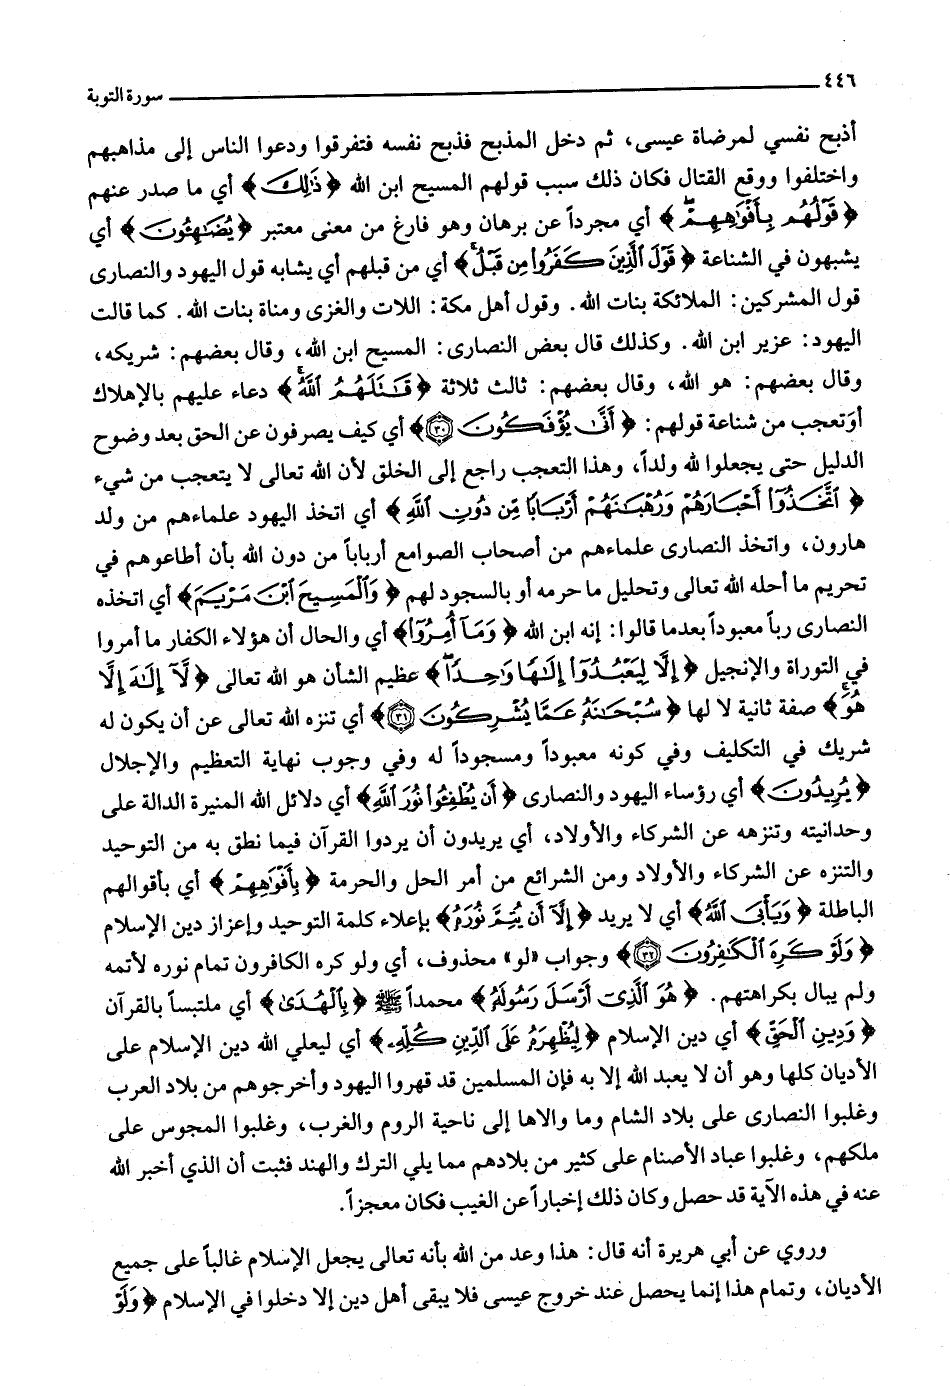 ٤٤٦ سورة التوبة
أذبح نفسي لمرضاة عيسى، ثم دخل المذبح فذبح نفسه فتفرقوا ودعوا الناس إلى مذاهبهم
واختلفوا ووقع القتال فكان ذلك سبب قولهم المسيح ابن الله ﴿ذَٰلِكَ﴾ أي ما صدر عنهم
﴿قَوْلُهُم بِأَفْوَٰهِهِمْ﴾ أي مجرداً عن برهان وهو فارغ من معنى معتبر ﴿يُضَٰهِـُٔونَ﴾ أي
يشبهون في الشناعة ﴿قَوْلَ ٱلَّذِينَ كَفَرُوا۟ مِن قَبْلُ﴾ أي من قبلهم أي يشابه قول اليهود والنصارى
قول المشركين: الملائكة بنات الله. وقول أهل مكة: اللات والغزى ومناة بنات الله. كما قالت
اليهود: عزير ابن الله. وكذلك قال بعض النصارى: المسيح ابن الله، وقال بعضهم: شريكه،
وقال بعضهم: هو الله، وقال بعضهم: ثالث ثلاثة ﴿قَٰتَلَهُمُ ٱللَّهُ﴾ دعاء عليهم بالإهلاك
أوَتعجب من شناعة قولهم: ﴿أَنَّىٰ يُؤْفَكُونَ ٣٠﴾ أي كيف يصرفون عن الحق بعد وضوح
الدليل حتى يجعلوا لله ولداً، وهذا التعجب راجع إلى الخلق لأن الله تعالى لا يتعجب من شيء
﴿ٱتَّخَذُوٓا۟ أَحْبَارَهُمْ وَرُهْبَٰنَهُمْ أَرْبَابًا مِّن دُونِ ٱللَّهِ﴾ أي اتخذ اليهود علماءهم من ولد
هارون، واتخذ النصارى علماءهم من أصحاب الصوامع أرباباً من دون الله بأن أطاعوهم في
تحريم ما أحله الله تعالى وتحليل ما حرمه أو بالسجود لهم ﴿وَٱلْمَسِيحَ ٱبْنَ مَرْيَمَ﴾ أي اتخذه
النصارى رباً معبوداً بعدما قالوا: إنه ابن الله ﴿وَمَآ أُمِرُوٓا۟﴾ أي والحال أن هؤلاء الكفار ما أمروا
في التوراة والإنجيل ﴿إِلَّا لِيَعْبُدُوٓا۟ إِلَٰهًا وَٰحِدًا﴾ عظيم الشأن هو الله تعالى ﴿لَّآ إِلَٰهَ إِلَّا
هُوَ﴾ صفة ثانية لا لها ﴿سُبْحَٰنَهُۥ عَمَّا يُشْرِكُونَ ٣١﴾ أي تنزه الله تعالى عن أن يكون له
شريك في التكليف وفي كونه معبوداً ومسجوداً له وفي وجوب نهاية التعظيم والإجلال
﴿يُرِيدُونَ﴾ أي رؤساء اليهود والنصارى ﴿أَن يُطْفِـُٔوا۟ نُورَ ٱللَّهِ﴾ أي دلائل الله المنيرة الدالة على
وحدانيته وتنزهه عن الشركاء والأولاد، أي يريدون أن يردوا القرآن فيما نطق به من التوحيد
والتنزه عن الشركاء والأولاد ومن الشرائع من أمر الحل والحرمة ﴿بِأَفْوَٰهِهِمْ﴾ أي بأقوالهم
الباطلة ﴿وَيَأْبَى ٱللَّهُ﴾ أي لا يريد ﴿إِلَّآ أَن يُتِمَّ نُورَهُۥ﴾ بإعلاء كلمة التوحيد وإعزاز دين الإسلام
﴿وَلَوْ كَرِهَ ٱلْكَٰفِرُونَ ٣٢﴾ وجواب «لو» محذوف، أي ولو كره الكافرون تمام نوره لأتمه
ولم يبال بكراهتهم. ﴿هُوَ ٱلَّذِىٓ أَرْسَلَ رَسُولَهُۥ﴾ محمداً ﷺ ﴿بِٱلْهُدَىٰ﴾ أي ملتبساً بالقرآن
﴿وَدِينِ ٱلْحَقِّ﴾ أي دين الإسلام ﴿لِيُظْهِرَهُۥ عَلَى ٱلدِّينِ كُلِّهِۦ﴾ أي ليعلي الله دين الإسلام على
الأديان كلها وهو أن لا يعبد الله إلا به فإن المسلمين قد قهروا اليهود وأخرجوهم من بلاد العرب
وغلبوا النصارى على بلاد الشام وما والاها إلى ناحية الروم والغرب، وغلبوا المجوس على
ملكهم، وغلبوا عباد الأصنام على كثير من بلادهم مما يلي الترك والهند فثبت أن الذي أخبر الله
عنه في هذه الآية قد حصل وكان ذلك إخباراً عن الغيب فكان معجزاً.
وروي عن أبي هريرة أنه قال: هذا وعد من الله بأنه تعالى يجعل الإسلام غالباً على جميع
الأديان، وتمام هذا إنما يحصل عند خروج عيسى فلا يبقى أهل دين إلا دخلوا في الإسلام ﴿وَلَوْ